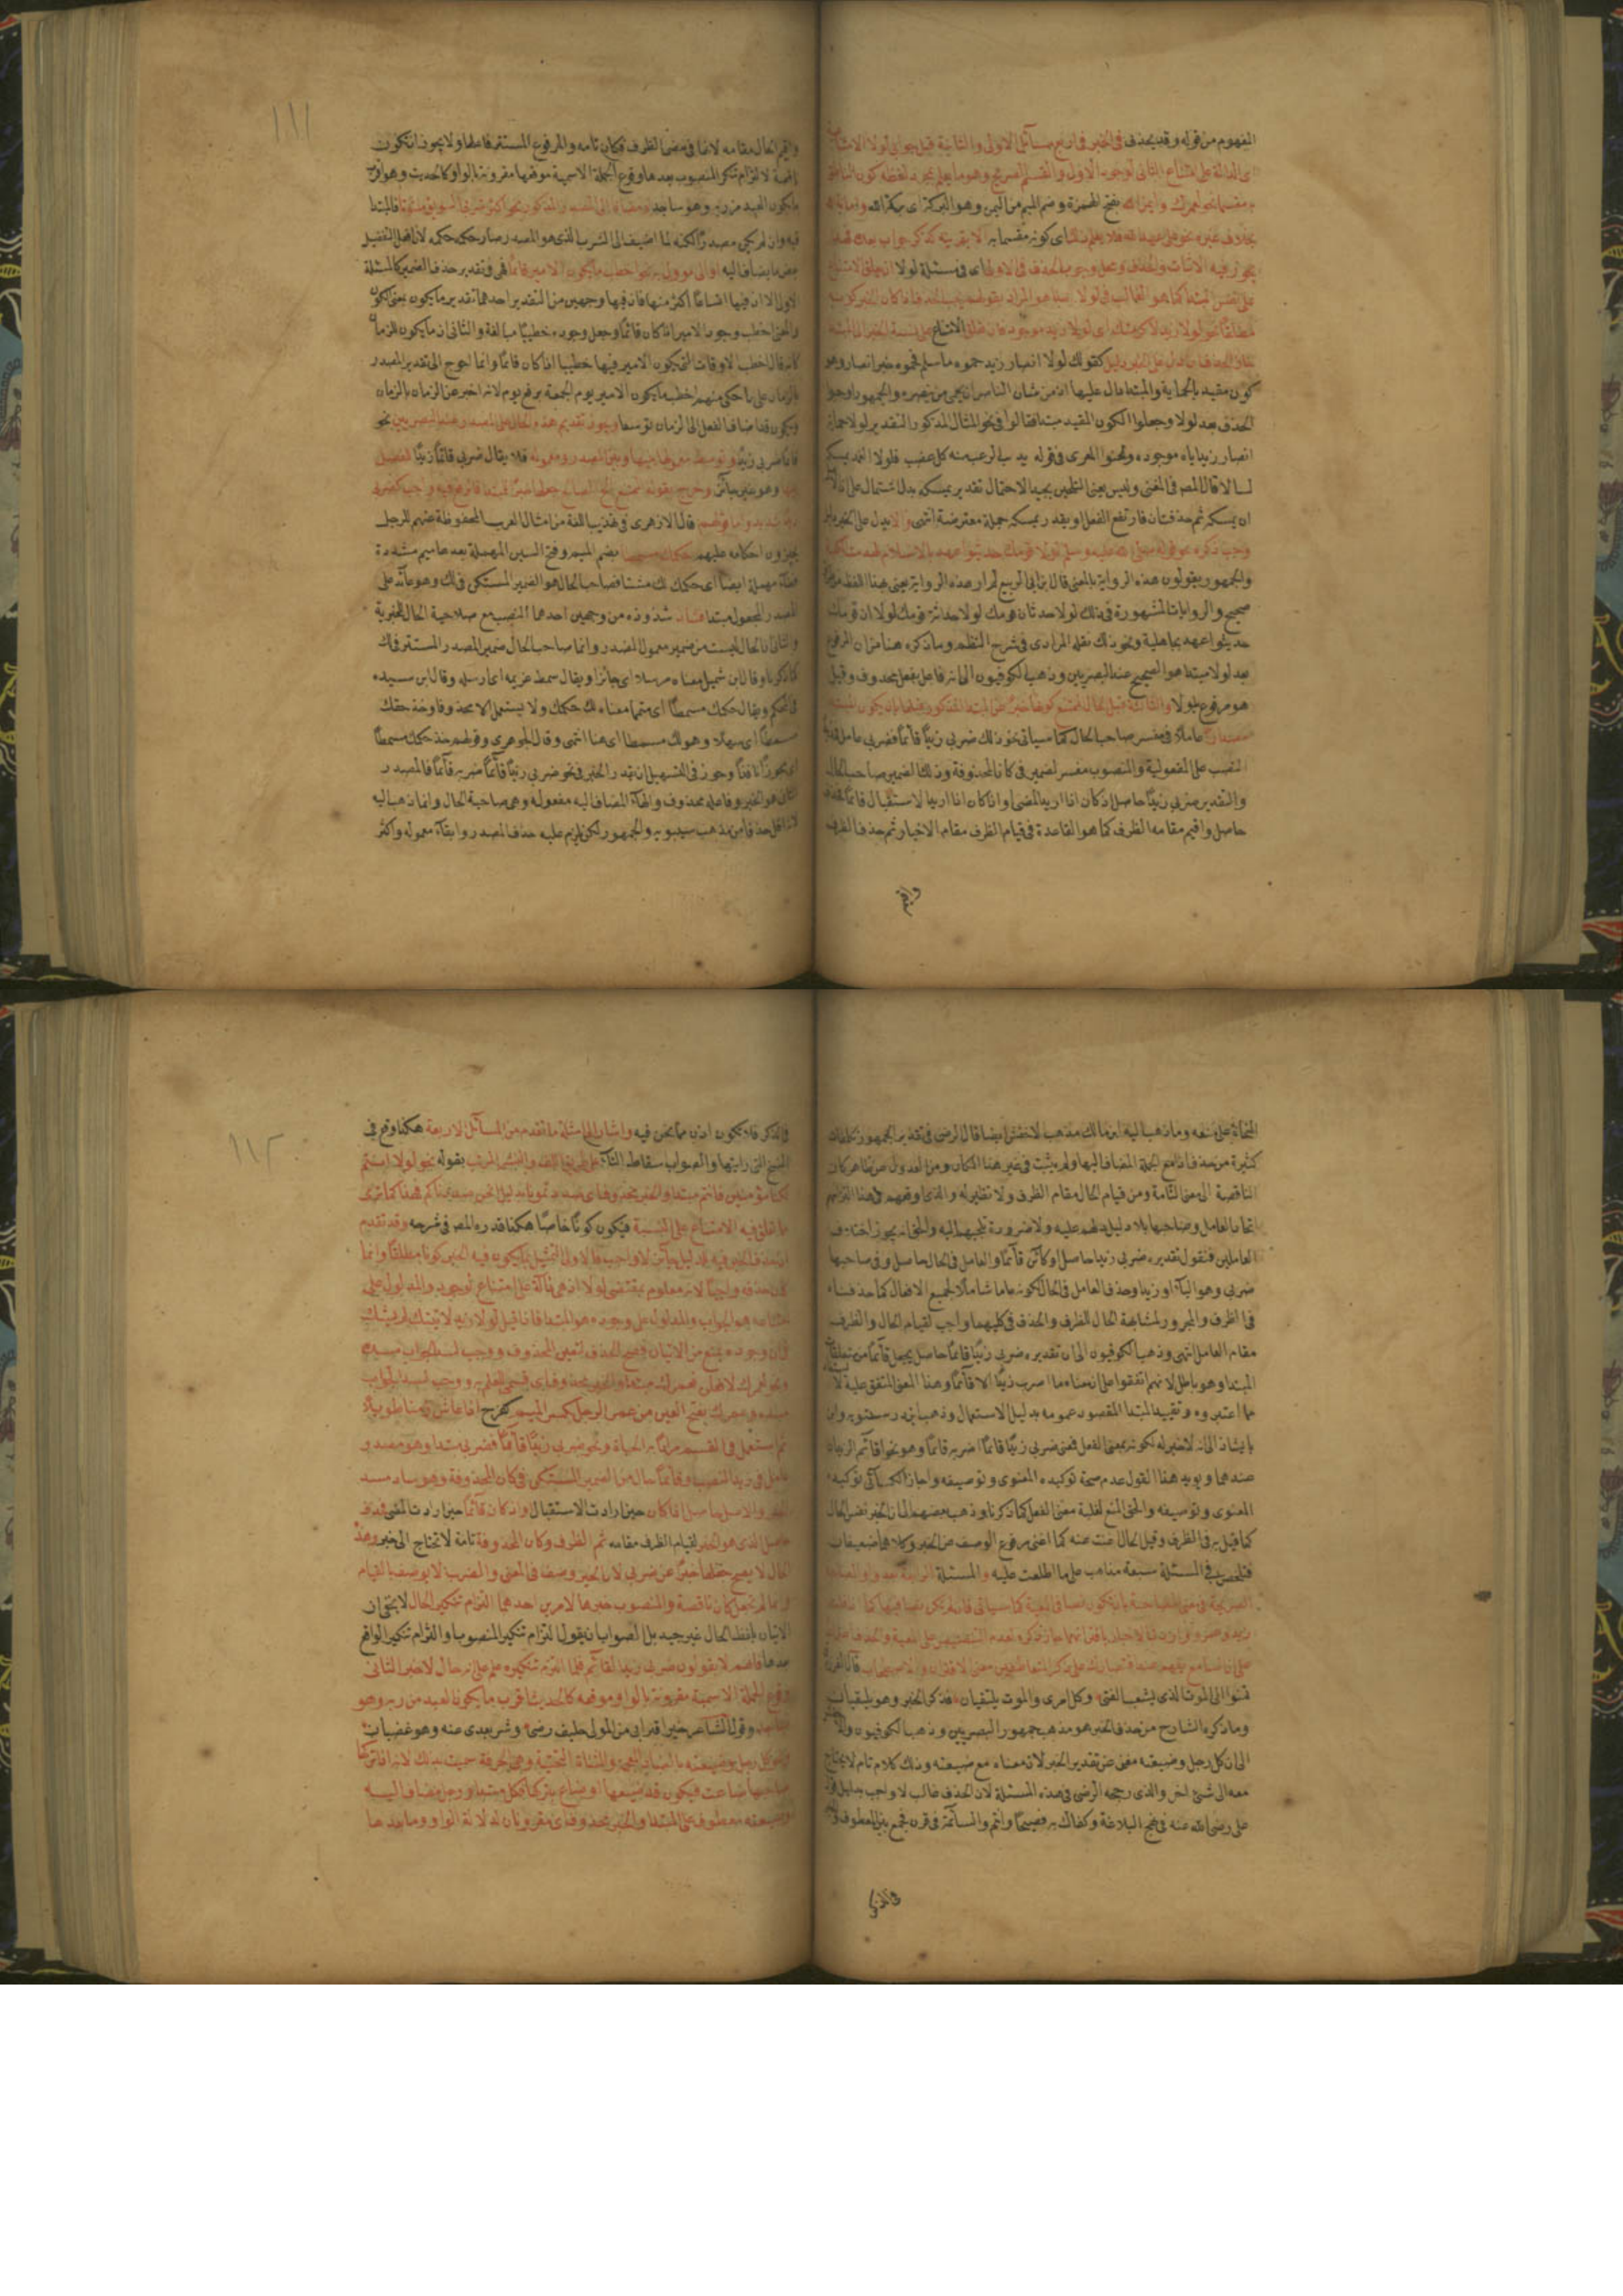 المفهوم من قوله وقد يحذف في الخبر في اربع مسائل الاولى والثانية قبل جوابي لولا الامتناعية
اي الدالة على امتناع الثاني لوجود الاول والقسم الصريح وهو ما يعلم بمجرد لفظه كون الناطق
به مقسما نحو لعمرك وايمن الله بفتح الهمزة وضم الميم من اليمن وهو البركة اي بركة الله
بخلاف غيره نحو على عهد الله فلا يعلم كونه مقسما به الا بقرينة كذكر جواب بعده
يجوز فيه الاثبات والحذف ومحل وجوب الحذف في الاولى اي في مسئلة لولا
على نفس المبتدا كما هو الغالب في لولا
مطلقا نحو لولا زيد لاكرمتك اي لولا زيد موجود فان علق الامتناع على نسبة الخبر الى المبتدا
جاز الحذف ان دل على الخبر دليل كقولك لولا انصار زيد حموه ما سلم فحموه خبر انصار وهو
كون مقيد بالحماية والمبتدا دال عليها اذ من شان الناصر ان يحمي من ينصره والجمهور اوجبوا
الحذف بعد لولا وجعلوا الكون المقيد مبتدا فقالوا في نحو المثال المذكور التقدير لولا حماية
انصار زيد اياه موجودة ولحنوا المعري في قوله يذيب الرعب منه كل عضب فلولا الغمد يمسكه
لسالا قال المصر في المغنى وليس بعين التلحين بجيد لاحتمال تقدير يمسكه بدل اشتمال على ان الاصل
ان يمسكه ثم حذفت ان فارتفع الفعل او يقدر يمسكه جملة معترضة انتهى والا
وجب ذكره نحو قوله صلى الله عليه وسلم لولا قومك حديثوا عهد بالاسلام لهدمت الكعبة
والجمهور يقولون هذه الرواية بالمعنى قال ابن ابي الربيع لم ار هذه الرواية يعني بهذا اللفظ من طريق
صحيح والروايات المشهورة في ذلك لولا حدثان قومك لولا حداثة قومك لولا ان قومك
حديثوا عهد بجاهلية ونحو ذلك نقله المرادي في شرح النظم وما ذكره هنا من ان المرفوع
بعد لولا مبتدا هو الصحيح عند البصريين وذهب الكوفيون الى انه فاعل بفعل محذوف وقيل
هو مرفوع بلولا والثالثة قبل الحال الممتنع كونها خبرا عن المبتدا المذكور قبلها
عاملا في مفسر صاحب الحال كما سياتي نحو ذلك ضربي زيدا قائما فضربي عامل في زيد
النصب على المفعولية والمنصوب مفسر لضمير في كان المحذوفة وذلك الضمير صاحب الحال
والتقدير ضربي زيدا حاصل اذ كان اذا اريد المضي او اذا كان اذا اريد الاستقبال قائما فحذف
حاصل واقيم مقامه الظرف كما هو القاعدة في قيام الظرف مقام الاخبار ثم حذف الظرف
واقيم
١١١
واقيم الحال مقامه لانها في معنى الظرف فكان تامة والمرفوع المستتر فاعلها ولا يجوز ان تكون
ناقصة لالتزام تنكر المنصوب بعدها ووقوع الجملة الاسمية موقعها مقرونة بالواو كالحديث وهو اقرب
ما يكون العبد من ربه وهو ساجد او مضافا الى المصدر المذكور نحو اكثر شربي السويق ملتوتا فالمبتدا
فيه وان لم يكن مصدرا لكنه لما اضيف الى الشرب الذي هو المصدر صار حكمه حكمه لان افعل التفضيل
بعض ما يضاف اليه او الى مؤول به نحو اخطب ما يكون الامير قائما فهي في تقدير حذف الضمير كالمسئلة
الاولى الا ان فيها اتساعا اكثر منها فان فيها وجهين من التقدير احدهما تقدير ما يكون بمعنى الكون
والمعنى اخطب وجود الامير اذا كان قائما وجعل وجوده خطيبا مبالغة والثاني ان ما يكون للزمان
كانه قال اخطب الاوقات التي يكون الامير فيها خطيبا اذا كان قائما وانما احوج الى تقدير المصدر
بالزمان على ما حكي منهم اخطب ما يكون الامير يوم الجمعة برفع يوم لانه اخبر عن الزمان بالزمان
ويكون قد اضاف الفعل الى الزمان توسعا ويجوز تقديم هذه الحال على المصدر عند البصريين نحو
قائما ضربي زيدا وتوسط معمولها بينها وبين المصدر ومعموله فلا يقال ضربي قائما زيدا للفصل
وهو غير جائز وخرج بقوله
قال الازهري في تهذيب اللغة من امثال العرب المحفوظة عنهم للرجل
يجيزون احكامه عليهم حكمك مسمطا بضم الميم وفتح السين المهملة بعدها ميم مشددة
فطاء مهملة ايضا اي حكمك لك مثبتا فصاحب الحال هو الضمير المستكن في لك وهو عائد على
المصدر المجعول مبتدا فشاذ شذوذه من وجهين احدهما النصب مع صلاحية الحال للخبرية
والثاني ان الحال ليست من ضمير معمول المصدر وانما صاحب الحال ضمير المصدر المستتر في لك
كما ذكرنا وقال ابن شميل معناه مرسلا اي جائزا ويقال سمط غريمه اي ارسله وقال ابن سيده
في المحكم ويقال حكمك مسمطا اي متمما معناه لك حكمك ولا يستعمل الا محذوفا وخذ حقك
مسمطا اي سهلا وهو لك مسمطا اي هنا انتهى وقال الجوهري وقولهم خذ حكمك مسمطا
اي مجوزا نافذا وجوز في التسهيل ان يقدر الخبر في نحو ضربي زيدا قائما ضربه قائما فالمصدر
الثاني هو الخبر وفاعله محذوف والهاء المضاف اليه مفعوله وهي صاحبة الحال وانما ذهب اليه
لانه اقل حذفا من مذهب سيبويه والجمهور لكن يلزم عليه حذف المصدر وابقاء معموله واكثر
النحاة على منعه وما ذهب اليه ابن مالك مذهب الاخفش ايضا قال الرضي في تقدير الجمهور تكلفات
كثيرة من حذف اذا مع الجملة المضاف اليها ولم يثبت في غير هذا المكان ومن العدول عن ظاهر كان
الناقصة الى معنى التامة ومن قيام الحال مقام الظرف ولا نظير له والذي اوقعهم في هذا التزامهم
اتحاد العامل وصاحبها بلا دليل دلهم عليه ولا ضرورة تلجيهم اليه والحق انه يجوز اختلاف
العاملين فنقول تقديره ضربي زيدا حاصل او كائن قائما والعامل في الحال حاصل وفي صاحبها
ضربي وهو الياء او زيدا وحذف العامل في الحال لكونه عاما شاملا لجميع الافعال كما حذفناه
في الظرف والمجرور لمشابهة الحال للظرف والحذف في كليهما واجب لقيام الحال والظرف
مقام العامل انتهى وذهب الكوفيون الى ان تقديره ضربي زيدا قائما حاصل بجعل قائما من متعلقات
المبتدا وهو باطل لانهم اتفقوا على ان معناه ما اضرب زيدا الا قائما وهذا المعنى المتفق عليه لا
ما اعتبروه وتقييد المبتدا المقصود عمومه بدليل الاستعمال وذهب ابن درستويه وابن
بابشاذ الى انه لا خبر له لكونه بمعنى الفعل فمعنى ضربي زيدا قائما اضربه قائما وهو نحو اقائم الزيدان
عندهما ويؤيد هذا القول عدم صحة توكيده المعنوي وتوصيفه واجاز الكسائي توكيده
المعنوي وتوصيفه والحق المنع لغلبة معنى الفعل كما ذكرنا وذهب بعضهم الى ان الخبر نفس الحال
كما قيل به في الظرف وقيل الحال اغنت عنه كما اغنى مرفوع الوصف عن الخبر وكلاهما ضعيفان
فتلخص في المسئلة سبعة مذاهب على ما اطلعت عليه والمسئلة الرابعة بعد واو العطف
الصريحة في معنى المصاحبة بان تكون نصا في المعية كما سياتي فان لم تكن نصا فيها كما
زيد وعمرو واردت الاخبار باقترانهما جاز ذكره لعدم التنصيص على المعية والحذف
تمنوا لي الموت الذي يشعب الفتى وكل امرئ والموت يلتقيان فذكر الخبر وهو يلتقيان
وما ذكره الشارح من حذف الخبر هو مذهب جمهور البصريين وذهب الكوفيون
الى ان كل رجل وضيعته مغن عن تقدير الخبر لان معناه مع ضيعته وذلك كلام تام لا يحتاج
معه الى شئ اخر والذي رجحه الرضي في هذه المسئلة لان الحذف غالب لا واجب بدليل قول
علي رضي الله عنه في نهج البلاغة وكفاك به فصيحا وانتم والساعة في قرن فجمع بين المعطوف
في الذكر
١١٢
في الذكر فلا يكون اذن مما نحن فيه واشار الى امثلة ما تقدم من المسائل الاربعة هكذا وقع في
النسخ التي رايتها والصواب سقاط التاء على طريق اللف والنشر المرتب بقوله نحو لولا انتم
لكنا مؤمنين فانتم مبتدا والخبر محذوف اي صددتمونا بدليل نحن صددناكم هذا كما ترى
ما علق فيه الامتناع على النسبة فيكون كونا خاصا هكذا قدره المصر في شرحه وقد تقدم
ان حذف الخبر فيه لدليل جائز لا واجب فالاولى التمثيل بما يكون فيه الخبر كونا مطلقا وانما
كان حذفه واجبا لانه معلوم بمقتضى لولا اذ هي دالة على امتناع لوجود والمدلول على
امتناعه هو الجواب والمدلول على وجوده هو المبتدا فاذا قيل لولا زيد لاتيتك لم يشك
في ان وجوده منع من الاتيان فصح الحذف لتعين المحذوف ووجب لسد الجواب مسده
ونحو لعمرك لافعلن فعمرك مبتدا والخبر محذوف اي قسمي للعلم به ووجب لسد الجواب
مسده وعمرك بفتح العين من عمر الرجل بكسر الميم كفرح اذا عاش زمنا طويلا
ثم استعمل في القسم مرادا به الحياة ونحو ضربي زيدا قائما فضربي مبتدا وهو مصدر
عامل في زيد النصب وقائما حال من الضمير المستكن في كان المحذوفة وهو ساد مسد
الخبر والاصل حاصل اذا كان حين ارادت الاستقبال واذ كان قائما حين ارادت المضي فحذف
حاصل الذي هو الخبر لقيام الظرف مقامه ثم الظرف وكان المحذوفة تامة لا تحتاج الى خبر وهذه
الحال لا يصح جعلها خبرا عن ضربي لان الخبر وصف في المعنى والضرب لا يوصف بالقيام
وانما لم تجعل كان ناقصة والمنصوب خبرها لامرين احدهما التزام تنكير الحال لا يخفى ان
الاتيان بلفظ الحال غير جيد بل الصواب ان يقول التزام تنكير المنصوب او التزام تنكير الواقع
بعدها فانهم لا يقولون ضربي زيدا القائم فلما التزم تنكيره علم على انه حال لا خبر الثاني
وقوع الجملة الاسمية مقرونة بالواو موقعه كالحديث اقرب ما يكون العبد من ربه وهو
ساجد وقول الشاعر خير اقترابي من المولى حليف رضى وشر بعدي عنه وهو غضبان
ونحو كل رجل وضيعته بالضاد المعجمة والمثناة التحتية وهي الحرفة سميت بذلك لانه اذا تركها
صاحبها ضاعت فيكون قد ضيعها او ضاع بتركها فكل مبتدا ورجل مضاف اليه
وضيعته معطوف على المبتدا والخبر محذوف اي مقرونان لدلالة الواو وما بعدها